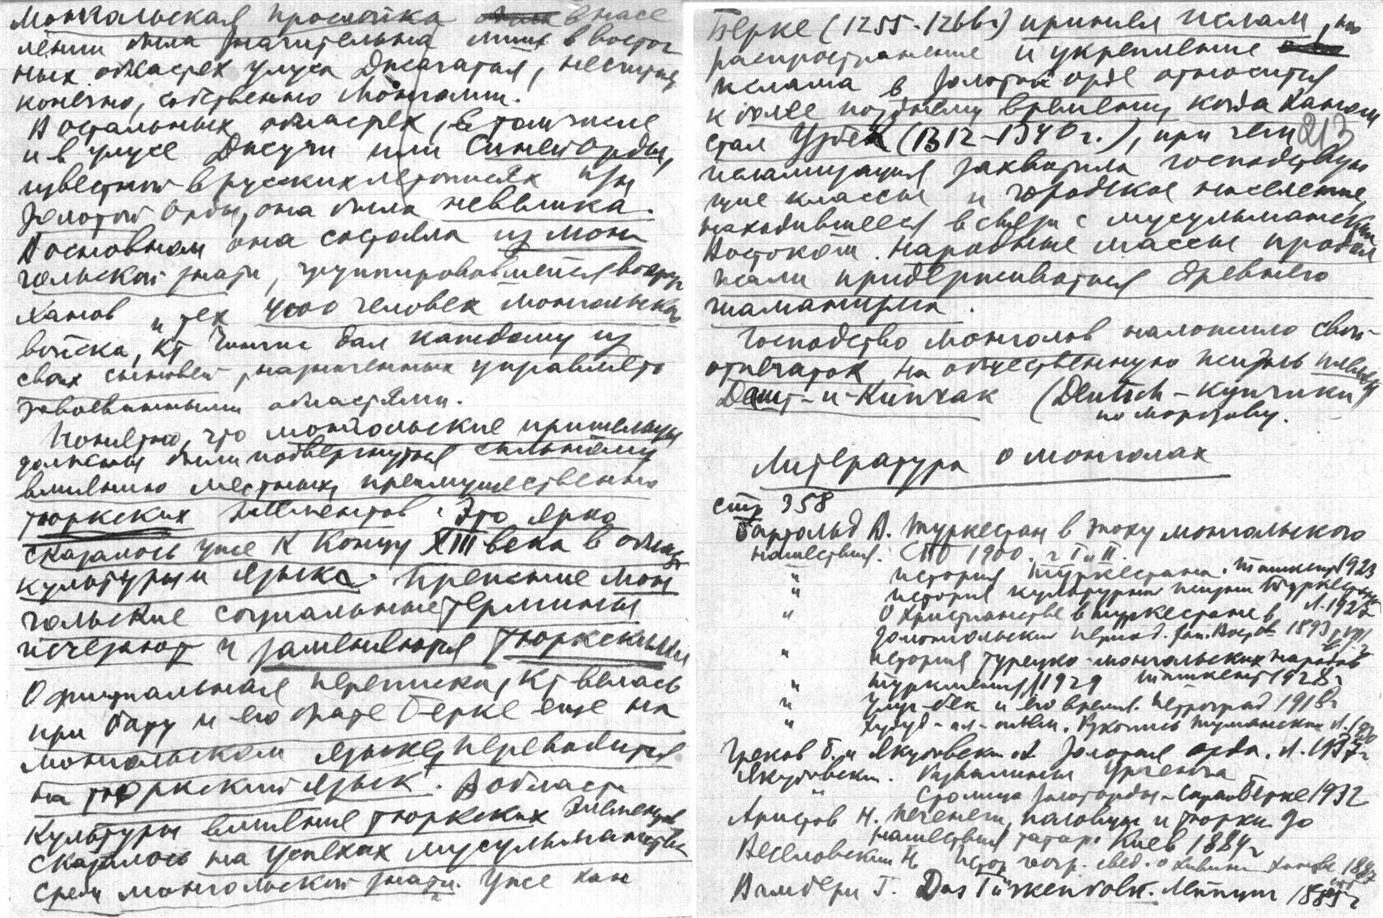 Монгольская прослойка в насе
лении была значительна лишь в восточ
ных областях улуса Джагатая, не считая,
конечно, собственно Монголии.
В остальных областях, в том числе
и в улусе Джучи или Синей Орды,
известной в русских летописях как
Золотой Орды, она была невелика.
В основном она состояла из мон
гольской знати, группировавшейся вокруг
ханов и тех 4000 человек монгольского
войска, кт Чингис дал каждому из
своих сыновей, назначенных управлять
завоеванными областями.
Понятно, что монгольские пришельцы
должны были подвергнуться сильному
влиянию местных, преимущественно
тюркских элементов. Это ярко
сказалось уже к концу XIII века в области
культуры и языка. Прежние мон
гольские социальные термины
исчезают и заменяются тюркскими
Официальная переписка, кт велась
при Бату и его брате Берке еще на
монгольском языке, переводится
на тюркский язык. В области
культуры влияние тюркских элементов
сказалось на успехах мусульманства
среди монгольской знати. Уже хан
Берке (1255-1266г) принял ислам, но
распространение и укрепление
ислама в Золотой орде относится
к более позднему времени, когда ханом
стал Узбек (1312-1340г.), при чем
213
исламизация захватила господствую
щие классы и городское население,
находившееся в связи с мусульманским
Востоком. Народные массы продол
жали придерживаться древнего
шаманизма.
Господство монголов наложило свой
отпечаток на общественную жизнь племен
Дешт-и-Кипчак (Deutsch-кипчаки)
по Морозову.
Литература о монголах
стр 358
Бартольд В. Туркестан в эпоху монгольского
нашествия. СПб 1900. ч I и II.
" история Туркестана. Ташкент 1923
" история культурной жизни Туркестана Л. 1927
" О христианстве в Туркестане в
домонгольский период. Зап. Восто 1893г, VIII
" история турецко-монгольских народов
Ташкент 1928г
" Туркмения 1929
" Улуг-бек и его время. Петроград 1918г
" Худуд-ал-алем. Рукопись Туманского Л. 1930
Греков Б. и Якубовский А Золотая орда. Л. 1937г
Якубовский. Развалины Ургенча
" Столица Зол орды-Сарай Берке 1932
Аристов Н. Печенеги, половцы и тюрки до
нашествия татар. Киев 1884г
Веселовский Н истор геогр. свед. о Хивин ханстве 1877
Вамбери Г. Das Türkenvolk. Лейпциг 1885г